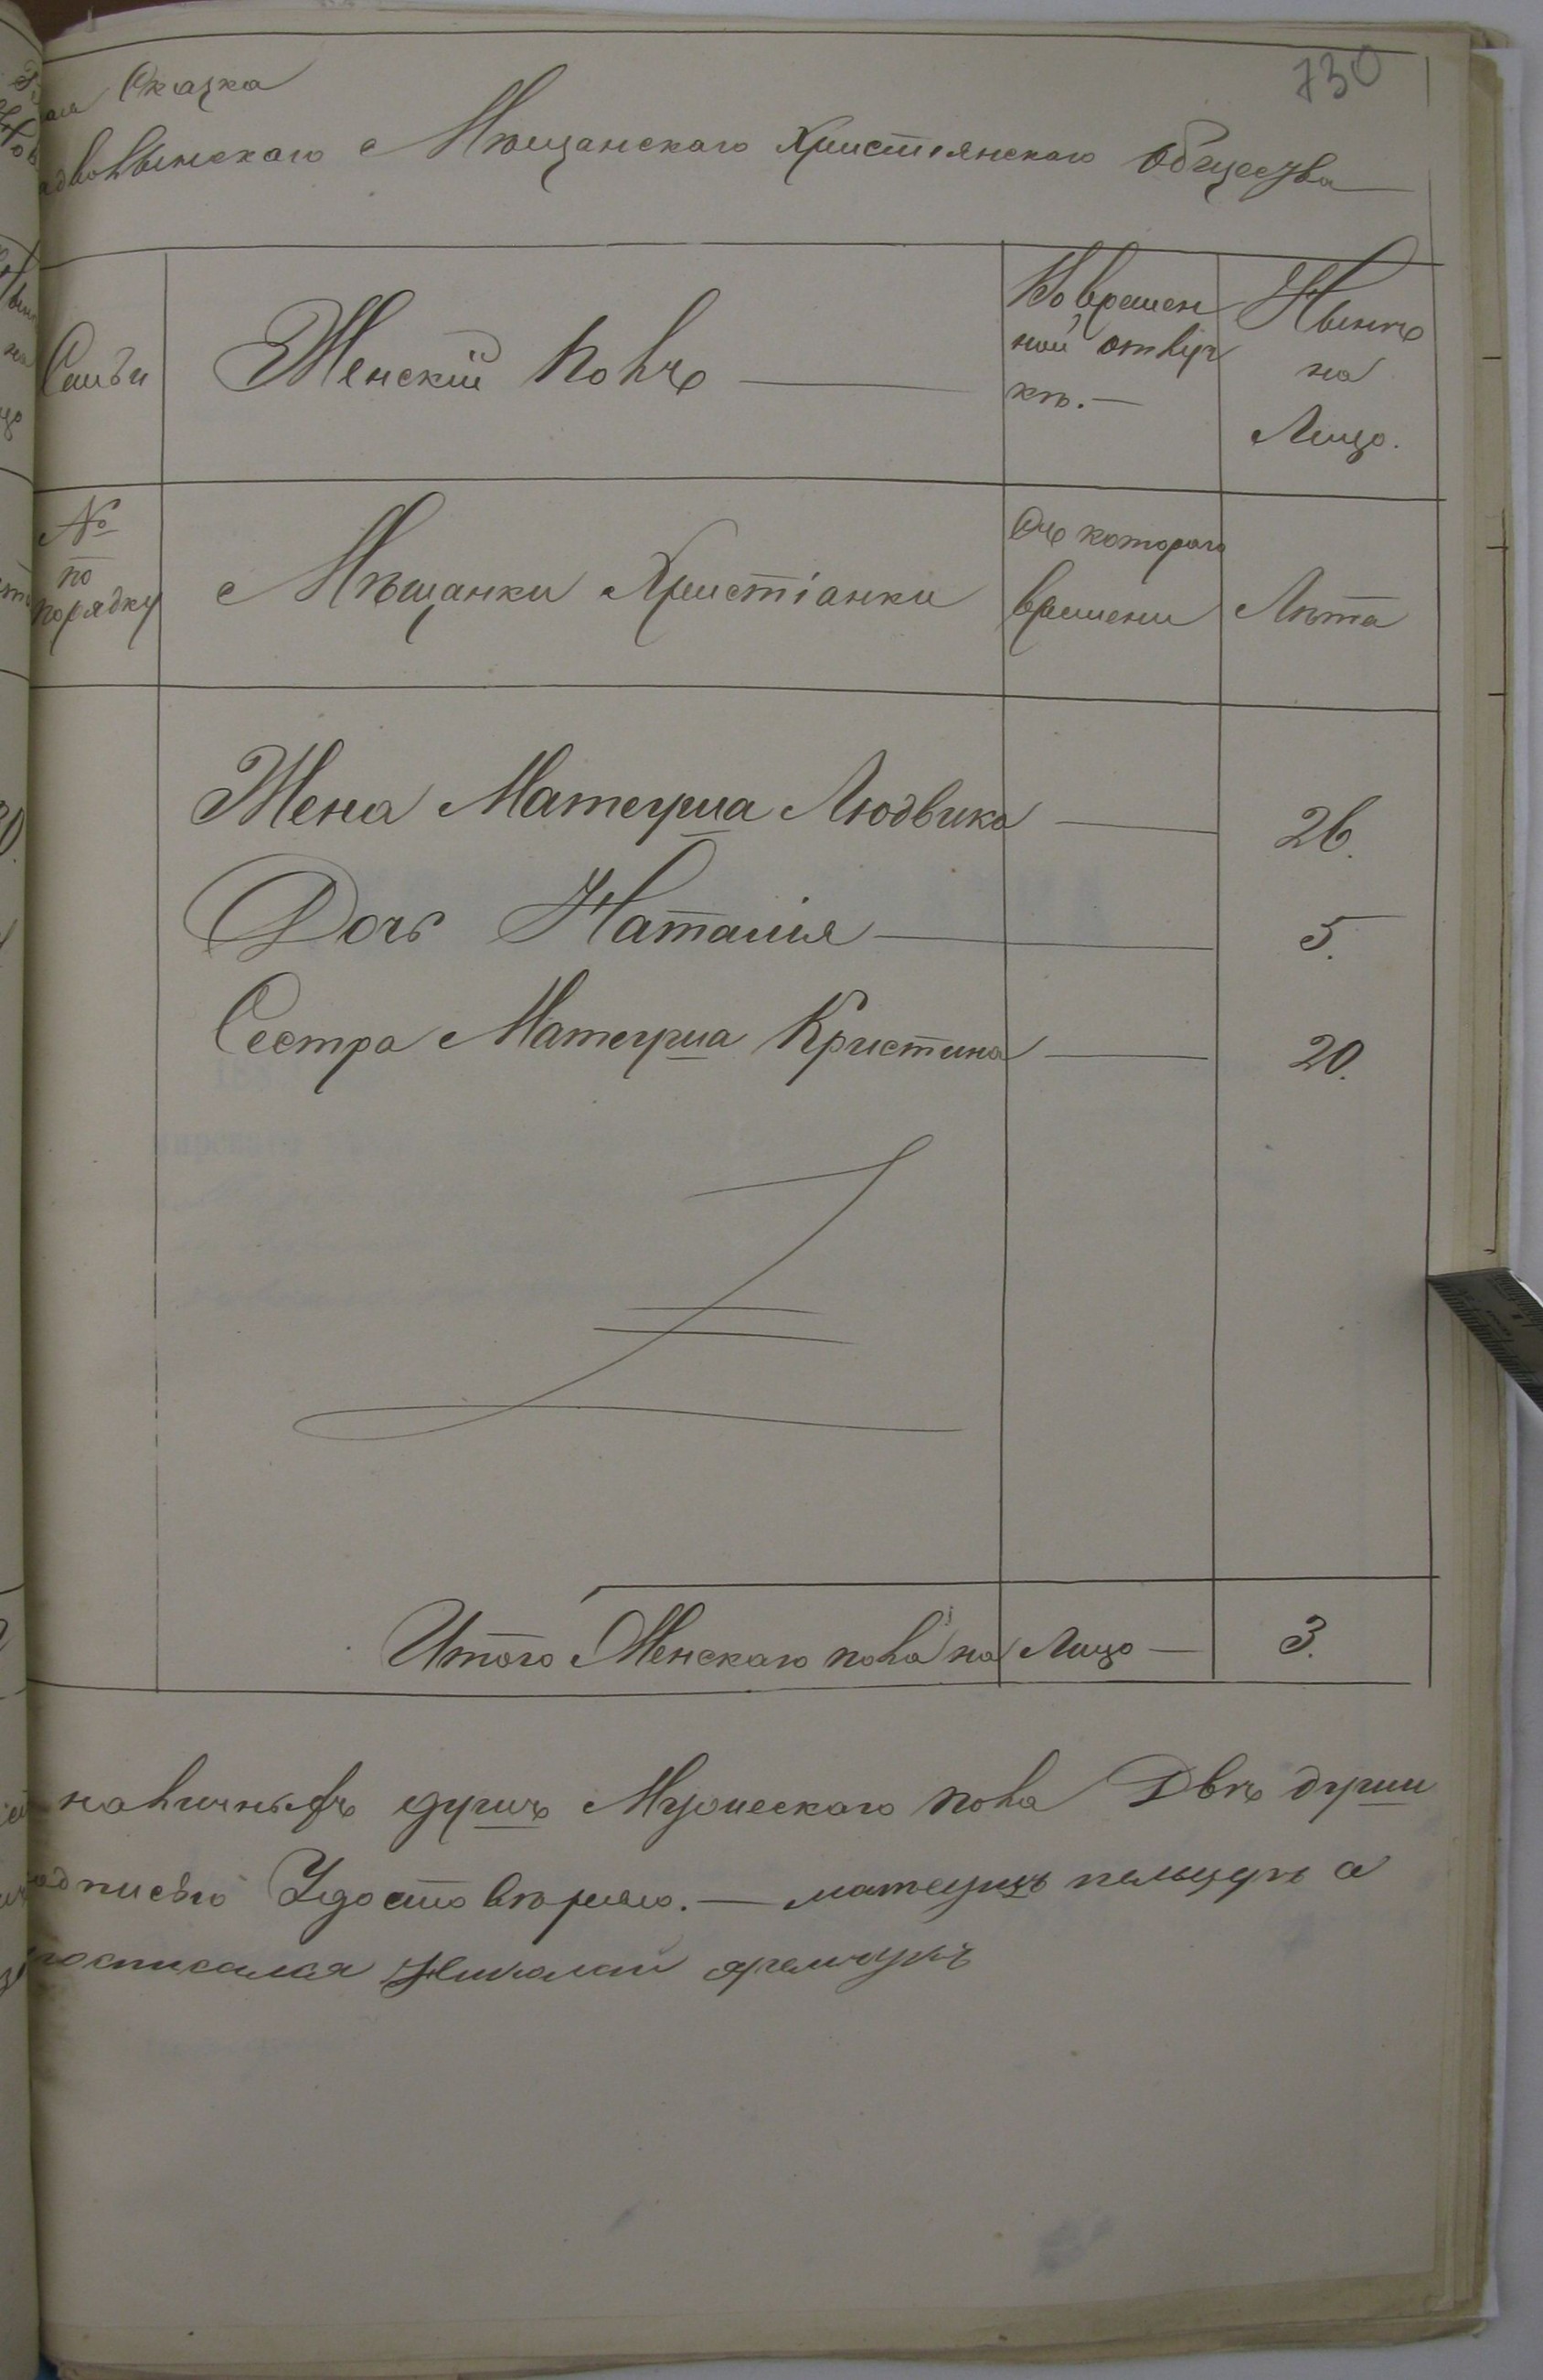 730
Сказка
Мѣщанскаго Христіянскаго Общества
Семьи
Женскій Полъ
Во времен
ной отлуч
кѣ.
Нынѣ
на
Лицо.
№
по
порядку
Мѣщанки Христіанки
Съ котораго
времени
Лѣта
Жена Матеуша Людвика — 26.
Дочь Наталія — 5.
Сестра Матеуша Кристина — 20.
Итого Женскаго пола на Лицо — 3.
наличныхъ душъ Мужескаго пола Двѣ души
Удостовѣряю. — матеушъ
Николай